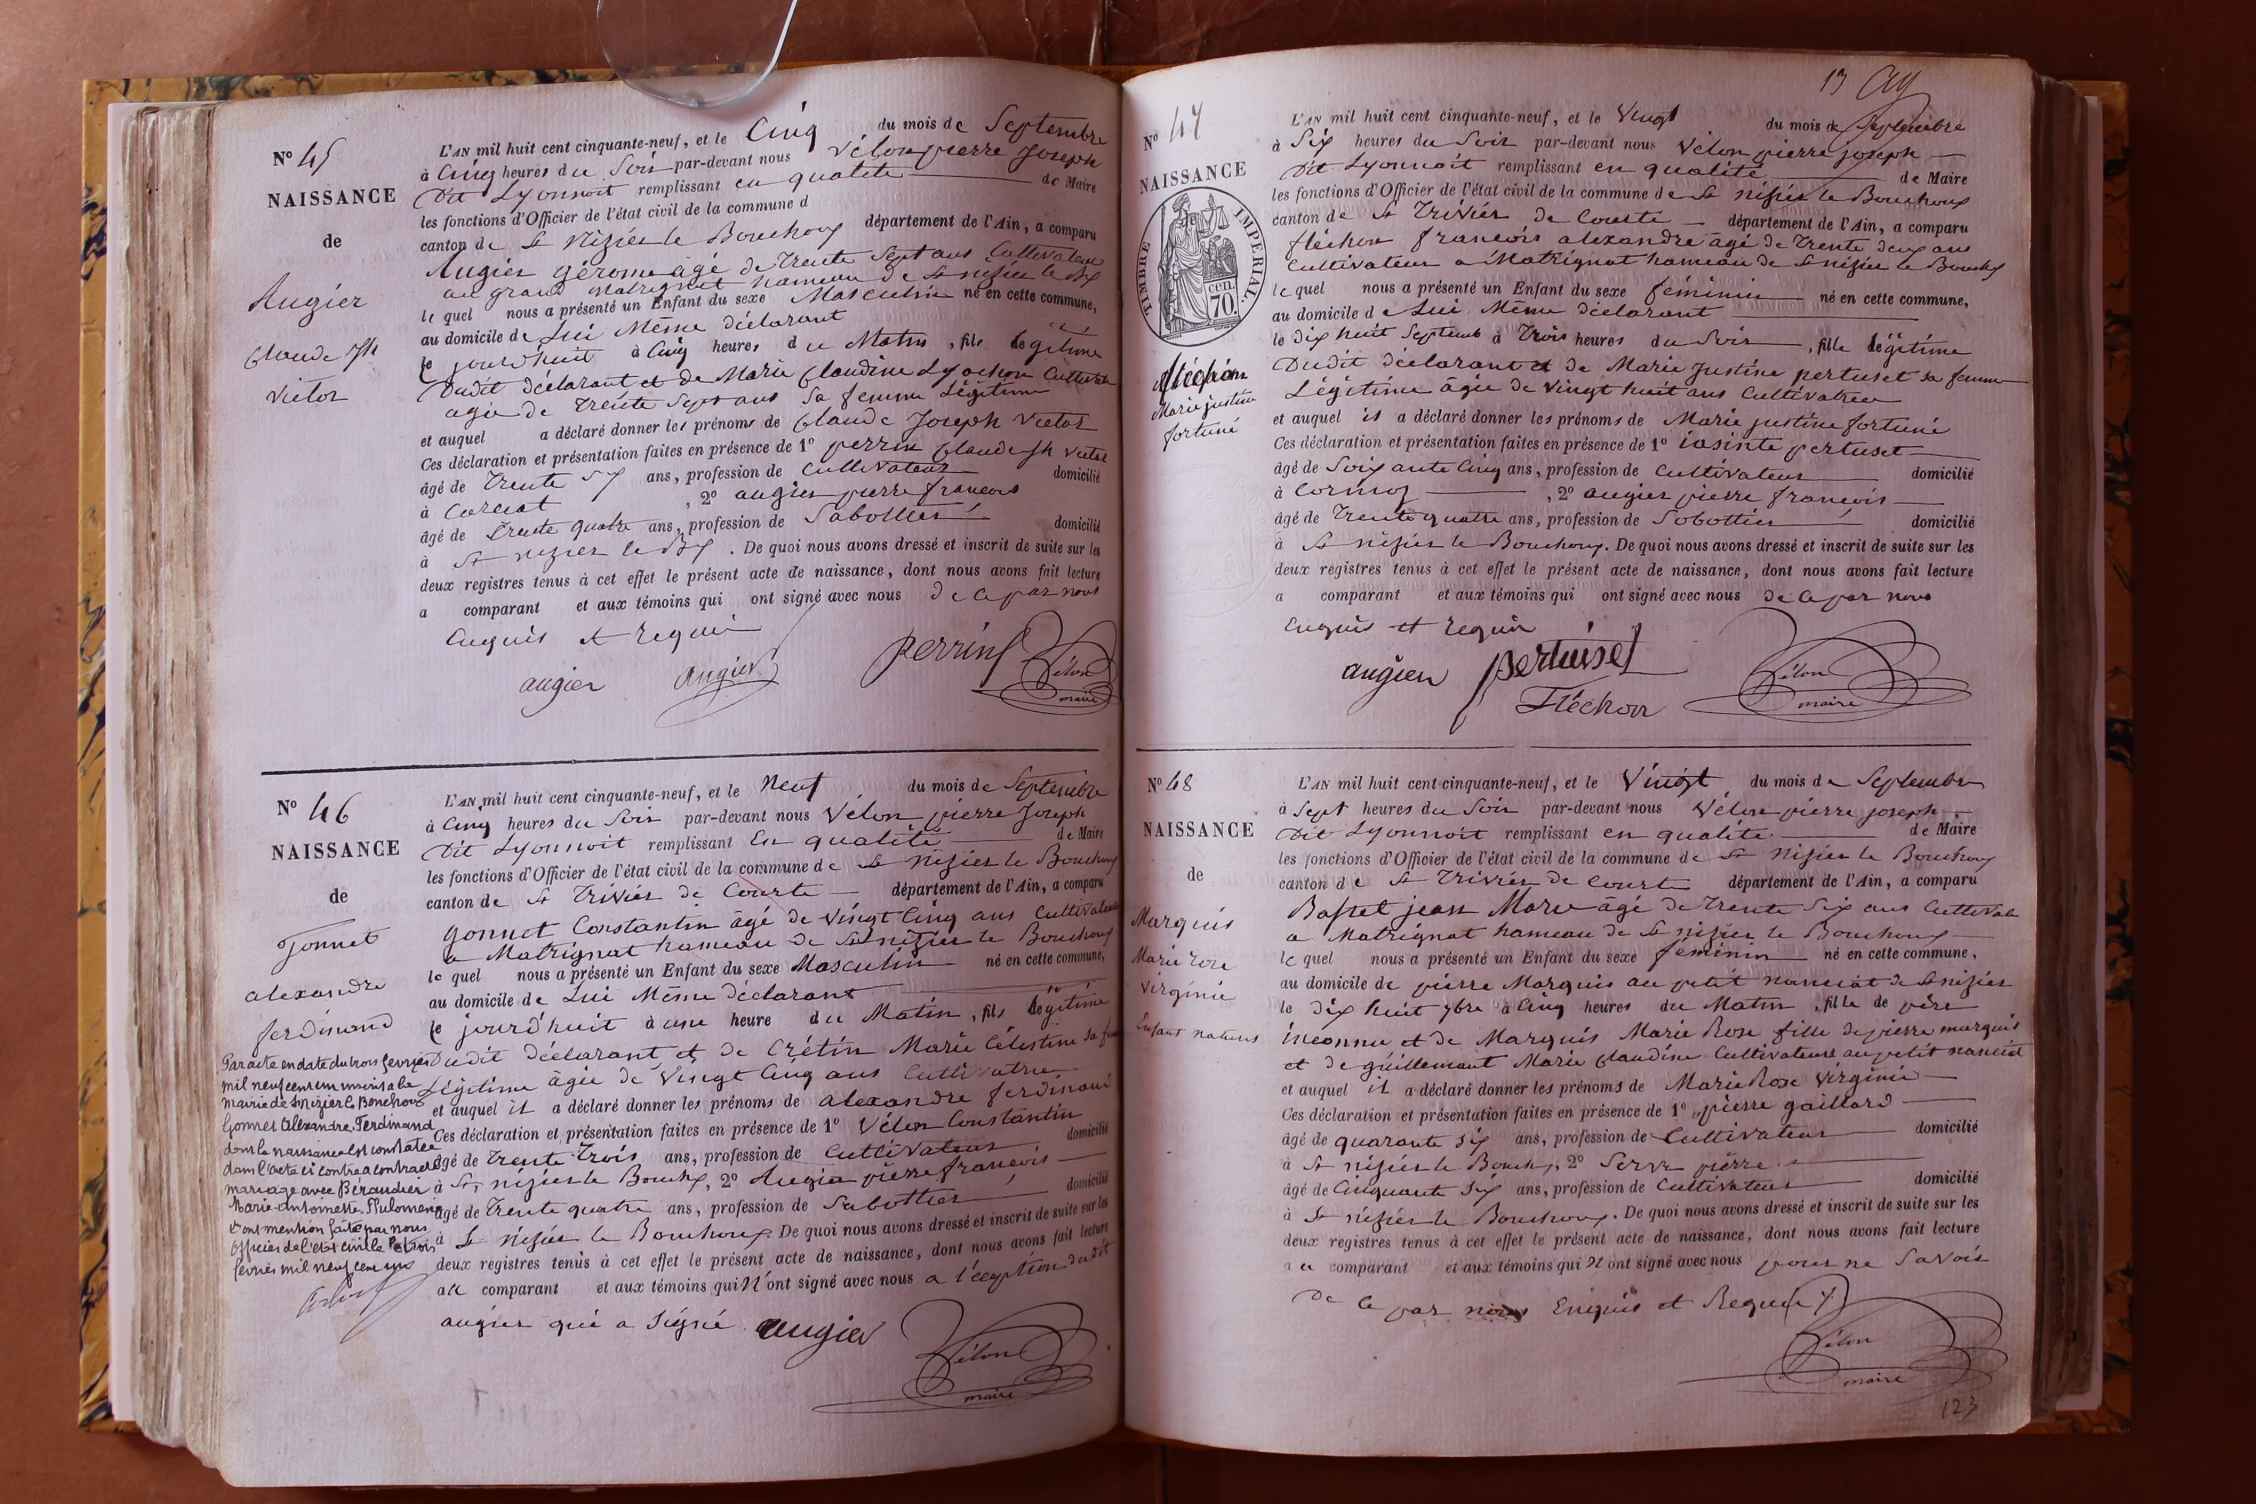 N° 45
NAISSANCE
de
Augier
Claude Jh
Victor
L'AN mil huit cent cinquante-neuf, et le Cinq du mois de Septembre
à Cinq heures du Soir par-devant nous Vélon pierre Joseph
Dit Lyonnoit remplissant en qualité de Maire
les fonctions d'Officier de l'état civil de la commune d
canton de St Nizier le Bouchoux département de l'Ain, a comparu
Augier gérome âgé de Trente Sept ans Cultivateur
au grand Matrignat hameau de St nizier le Bx
le quel nous a présenté un Enfant du sexe Masculin né en cette commune,
au domicile de Lui Même déclarant
le jourd'huit à Cinq heures du Matin, fils légitime
Dudit déclarant et de Marie Claudine Lyochon Cultivat
agée de Trente Sept ans Sa femme Légitime
et auquel a déclaré donner les prénoms de Claude Joseph Victor
Ces déclaration et présentation faites en présence de 1° perrin Claude Jh Victor
âgé de Trente six ans, profession de Cultivateur domicilié
à Curciat, 2° augier pierre francois
âgé de Trente quatre ans, profession de Sabottier domicilié
à St nizier le Bx. De quoi nous avons dressé et inscrit de suite sur les
deux registres tenus à cet effet le présent acte de naissance, dont nous avons fait lecture
a comparant et aux témoins qui ont signé avec nous de ce par nous
Enquis et requis
augier Augier Perrin Vélon
maire
N° 46
NAISSANCE
de
Gonnet
alexandre
ferdinand
Par acte en date du trois février
mil neuf cent un inscrit à la
mairie de St nizier le Bouchoux
Gonnet Alexandre Ferdinand
dont la naissance est constatée
dans l'acte ci contre a contracté
mariage avec Béraudier
Marie-Antoinette Philomène
Dont mention faite par nous
officier de l'état civil le trois
février mil neuf cent un
L'AN mil huit cent cinquante-neuf, et le Neuf du mois de Septembre
à Cinq heures du Soir par-devant nous Vélon pierre Joseph
Dit Lyonnoit remplissant En qualité de Maire
les fonctions d'Officier de l'état civil de la commune de St Nizier le Bouchoux
canton de St Trivier de Courte département de l'Ain, a comparu
gonnet Constantin âgé de vingt Cinq ans Cultivateur
a Matrignat hameau de St nizier le Bouchoux
le quel nous a présenté un Enfant du sexe Masculin né en cette commune,
au domicile de Lui Même déclarant
le jourd'huit à une heure du Matin, fils légitime
Dudit déclarant et de Crétin Marie Célestine sa fem
Légitime âgée de Vingt Cinq ans Cultivatrice
et auquel il a déclaré donner les prénoms de alexandre ferdinand
Ces déclaration et présentation faites en présence de 1° Vélon Constantin
âgé de Trente Trois ans, profession de Cultivateur domicilié
à St nizier le Bouchx, 2° Augier pierre françois
âgé de Trente quatre ans, profession de Sabottier domicilié
à St Nizier le Bouchoux. De quoi nous avons dressé et inscrit de suite sur les
deux registres tenus à cet effet le présent acte de naissance, dont nous avons fait lecture
au comparant et aux témoins qui N'ont signé avec nous a l'éception dudit
augier qui a Signé augier
Vélon
maire
13
N° 47
NAISSANCE
TIMBRE IMPERIAL.
70 cen.
Fléchon
Marie justine
fortuné
L'AN mil huit cent cinquante-neuf, et le Vingt du mois de Septembre
à Six heures du Soir par-devant nous Vélon pierre joseph
Dit Lyonnoit remplissant en qualité de Maire
les fonctions d'Officier de l'état civil de la commune de St nizier le Bouchoux
canton de St Trivier de Courte département de l'Ain, a comparu
fléchon francois alexandre âgé de Trente deux ans
Cultivateur a Matrignat hameau de St nizier le Bouchx
le quel nous a présenté un Enfant du sexe féminin né en cette commune,
au domicile de Lui Même déclarant
le dix huit Septemb à Trois heures du Soir, fille légitime
Dudit déclarant et de Marie Justine pertuset sa femme
Légitime âgée de vingt huit ans Cultivatrice
et auquel il a déclaré donner les prénoms de Marie justine fortuné
Ces déclaration et présentation faites en présence de 1° iasinte pertuset
âgé de Soixante Cinq ans, profession de Cultivateur domicilié
à Cormoz, 2° augier pierre françois
âgé de Trente quatre ans, profession de Sobottier domicilié
à St nizier le Bouchoux. De quoi nous avons dressé et inscrit de suite sur les
deux registres tenus à cet effet le présent acte de naissance, dont nous avons fait lecture
a comparant et aux témoins qui ont signé avec nous de ce par nous
enquis et requis
augier Pertuiset Vélon
Fléchon maire
N° 48
NAISSANCE
de
Marquis
Marie Rose
Virginie
Enfant naturel
L'AN mil huit cent cinquante-neuf, et le Vingt du mois de Septembre
à Sept heures du Soir par-devant nous Vélon pierre joseph
Dit Lyonnoit remplissant en qualité de Maire
les fonctions d'Officier de l'état civil de la commune de St Nizier le Bouchoux
canton de St Trivier de Courte département de l'Ain, a comparu
Bastet jean Marie âgé de Trente Six ans Cultivat
a Matrignat hameau de St nizier le Bouchoux
le quel nous a présenté un Enfant du sexe féminin né en cette commune,
au domicile de pierre Marquis au petit nanciat de St nizier
le dix huit 7bre à Cinq heures du Matin, fille de père
inconnu et de Marquis Marie Rose fille de pierre marquis
et de guillemaut Marie Claudine Cultivateurs au petit nanciat
et auquel il a déclaré donner les prénoms de Marie Rose Virginie
Ces déclaration et présentation faites en présence de 1° pierre gaillard
âgé de quarante six ans, profession de Cultivateur domicilié
à St nizier le Bouchx, 2° Serve pierre
âgé de Cinquante Six ans, profession de Cultivateur domicilié
à St nizier le Bouchoux. De quoi nous avons dressé et inscrit de suite sur les
deux registres tenus à cet effet le présent acte de naissance, dont nous avons fait lecture
au comparant et aux témoins qui N'ont signé avec nous pour ne Savoir
De ce par nous Enquis et Requis
Vélon
maire
123